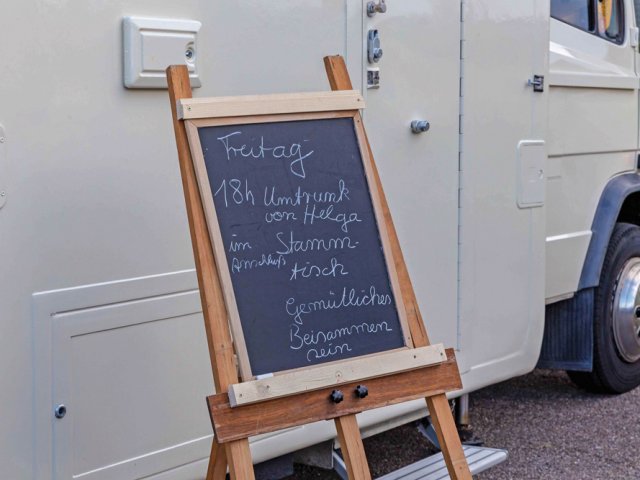 Freitag
18h Umtrunk
von Helga
im Stamm-
Anschluß tisch
Gemütliches
Beisammen
sein